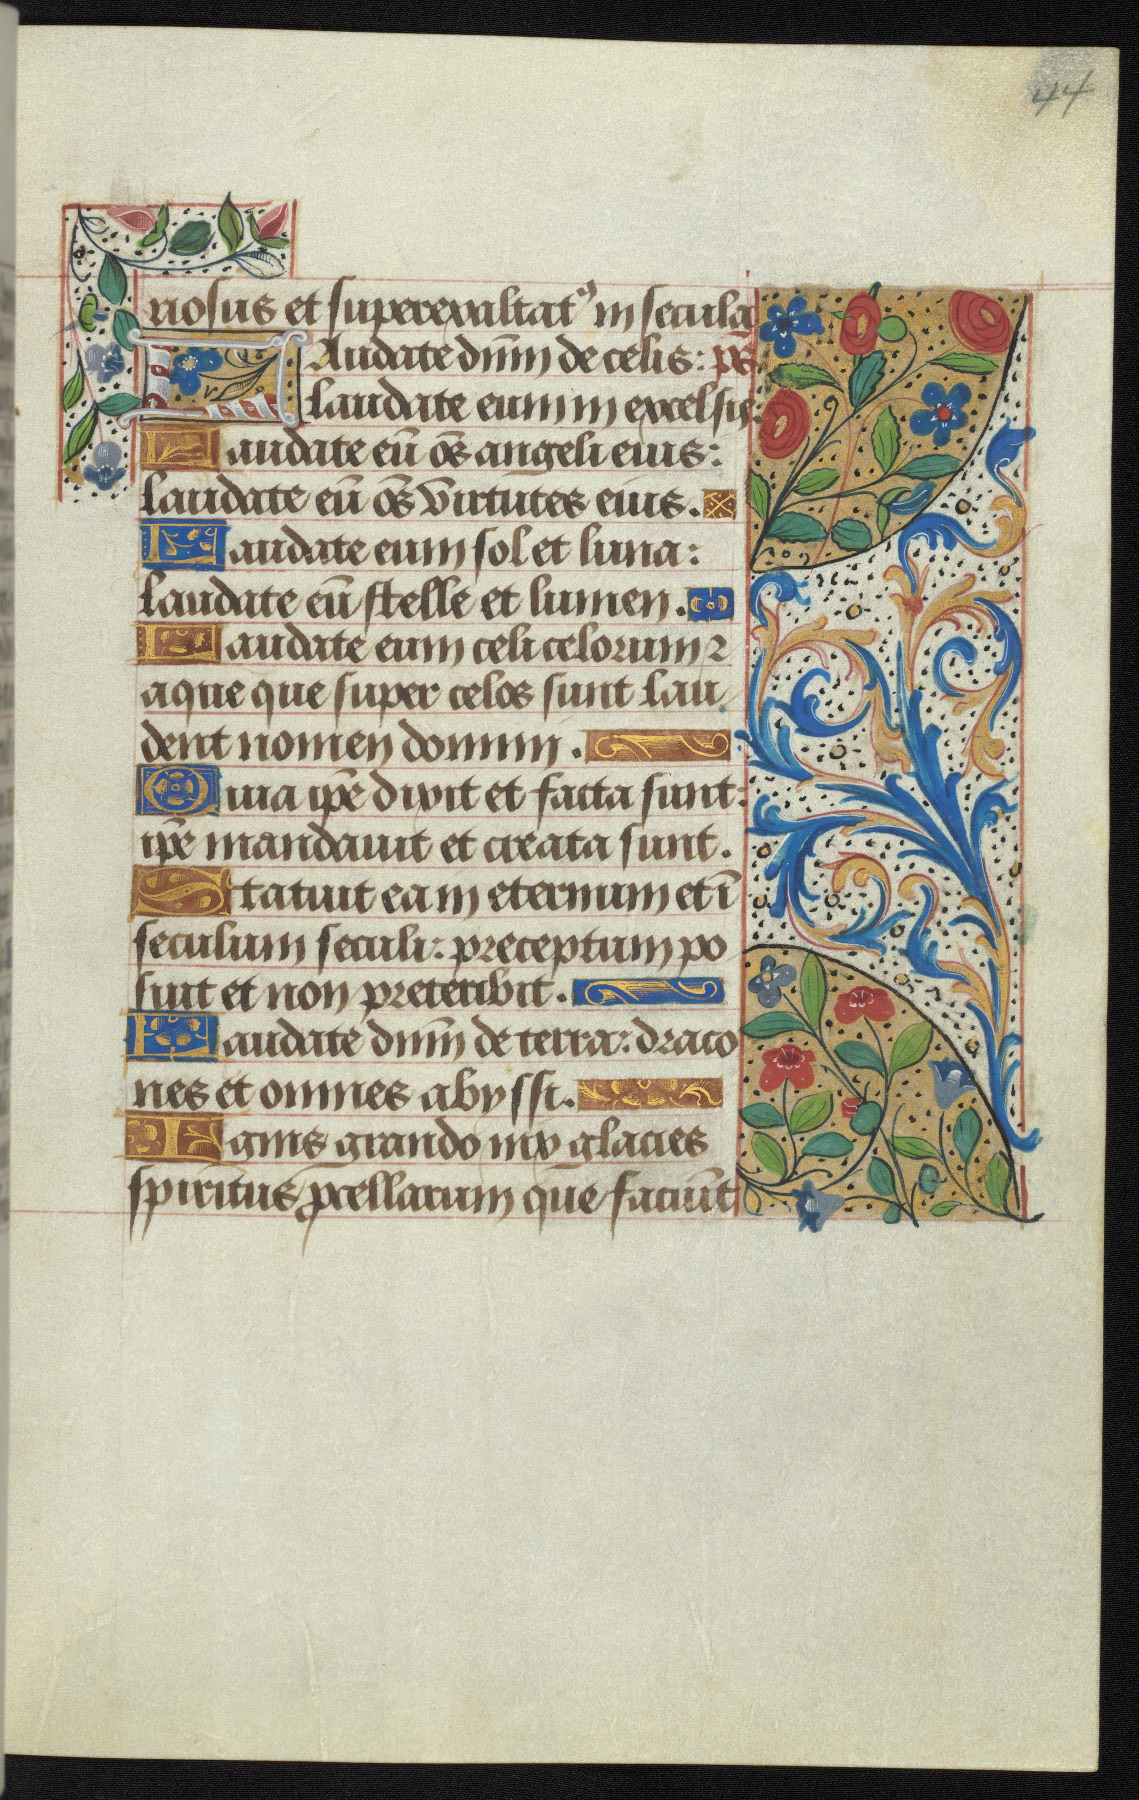 44
riosus et superexaltatꝰ in secula
Laudate dn̄m de celis: ps̄
laudate eum in excelsis.
Laudate eū oēs angeli eius:
laudate eū oēs virtutes eius.
Laudate eum sol et luna:
laudate eū stelle et lumen.
Laudate eum celi celorum ⁊
aque que super celos sunt lau
dent nomen domini.
Quia ip̄e dixit et facta sunt:
ip̄e mandauit et creata sunt.
Statuit ea in eternum et ī
seculum seculi: preceptum po
suit et non preteribit.
Laudate dn̄m de terra: draco
nes et omnes abyssi.
Ignis grando nix glacies
spiritus ꝓcellarum que faciūt